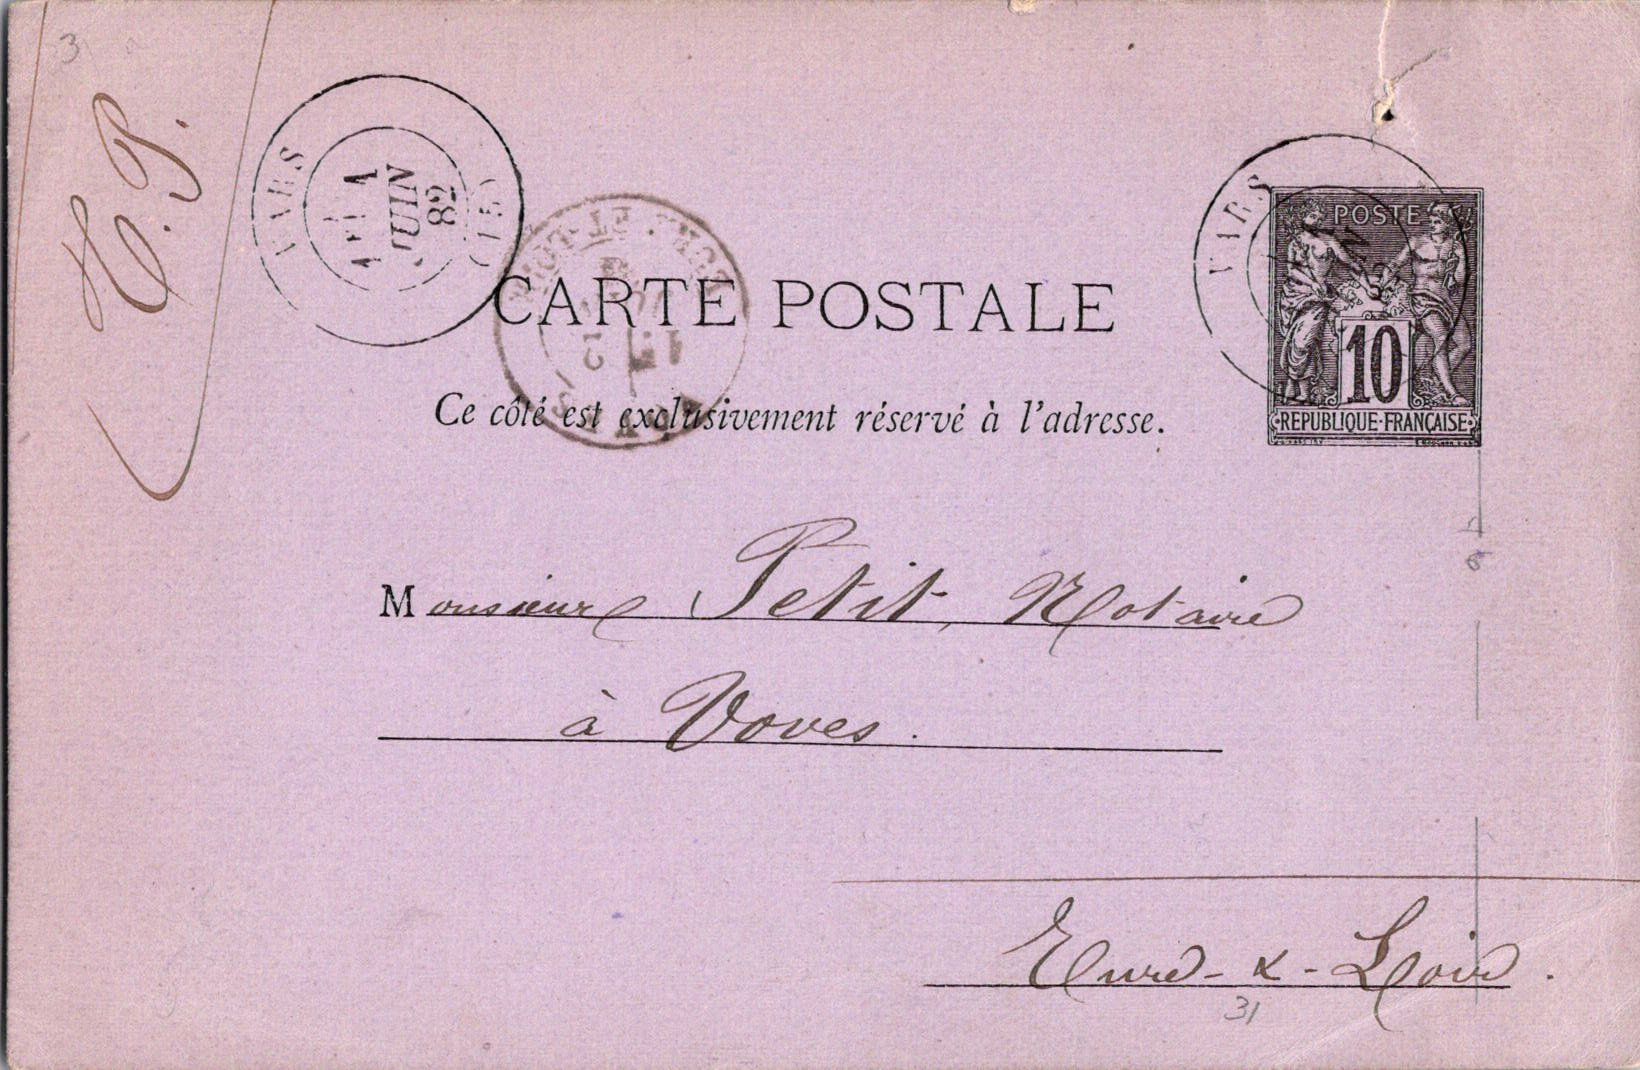 3
C. P.
VARS
1
JUIN
82
VARS
POSTE
10
REPUBLIQUE FRANÇAISE
CARTE POSTALE
Ce côté est exclusivement réservé à l'adresse.
Monsieur Petit, Notaire
à Voves.
Eure-&-Loir.
31